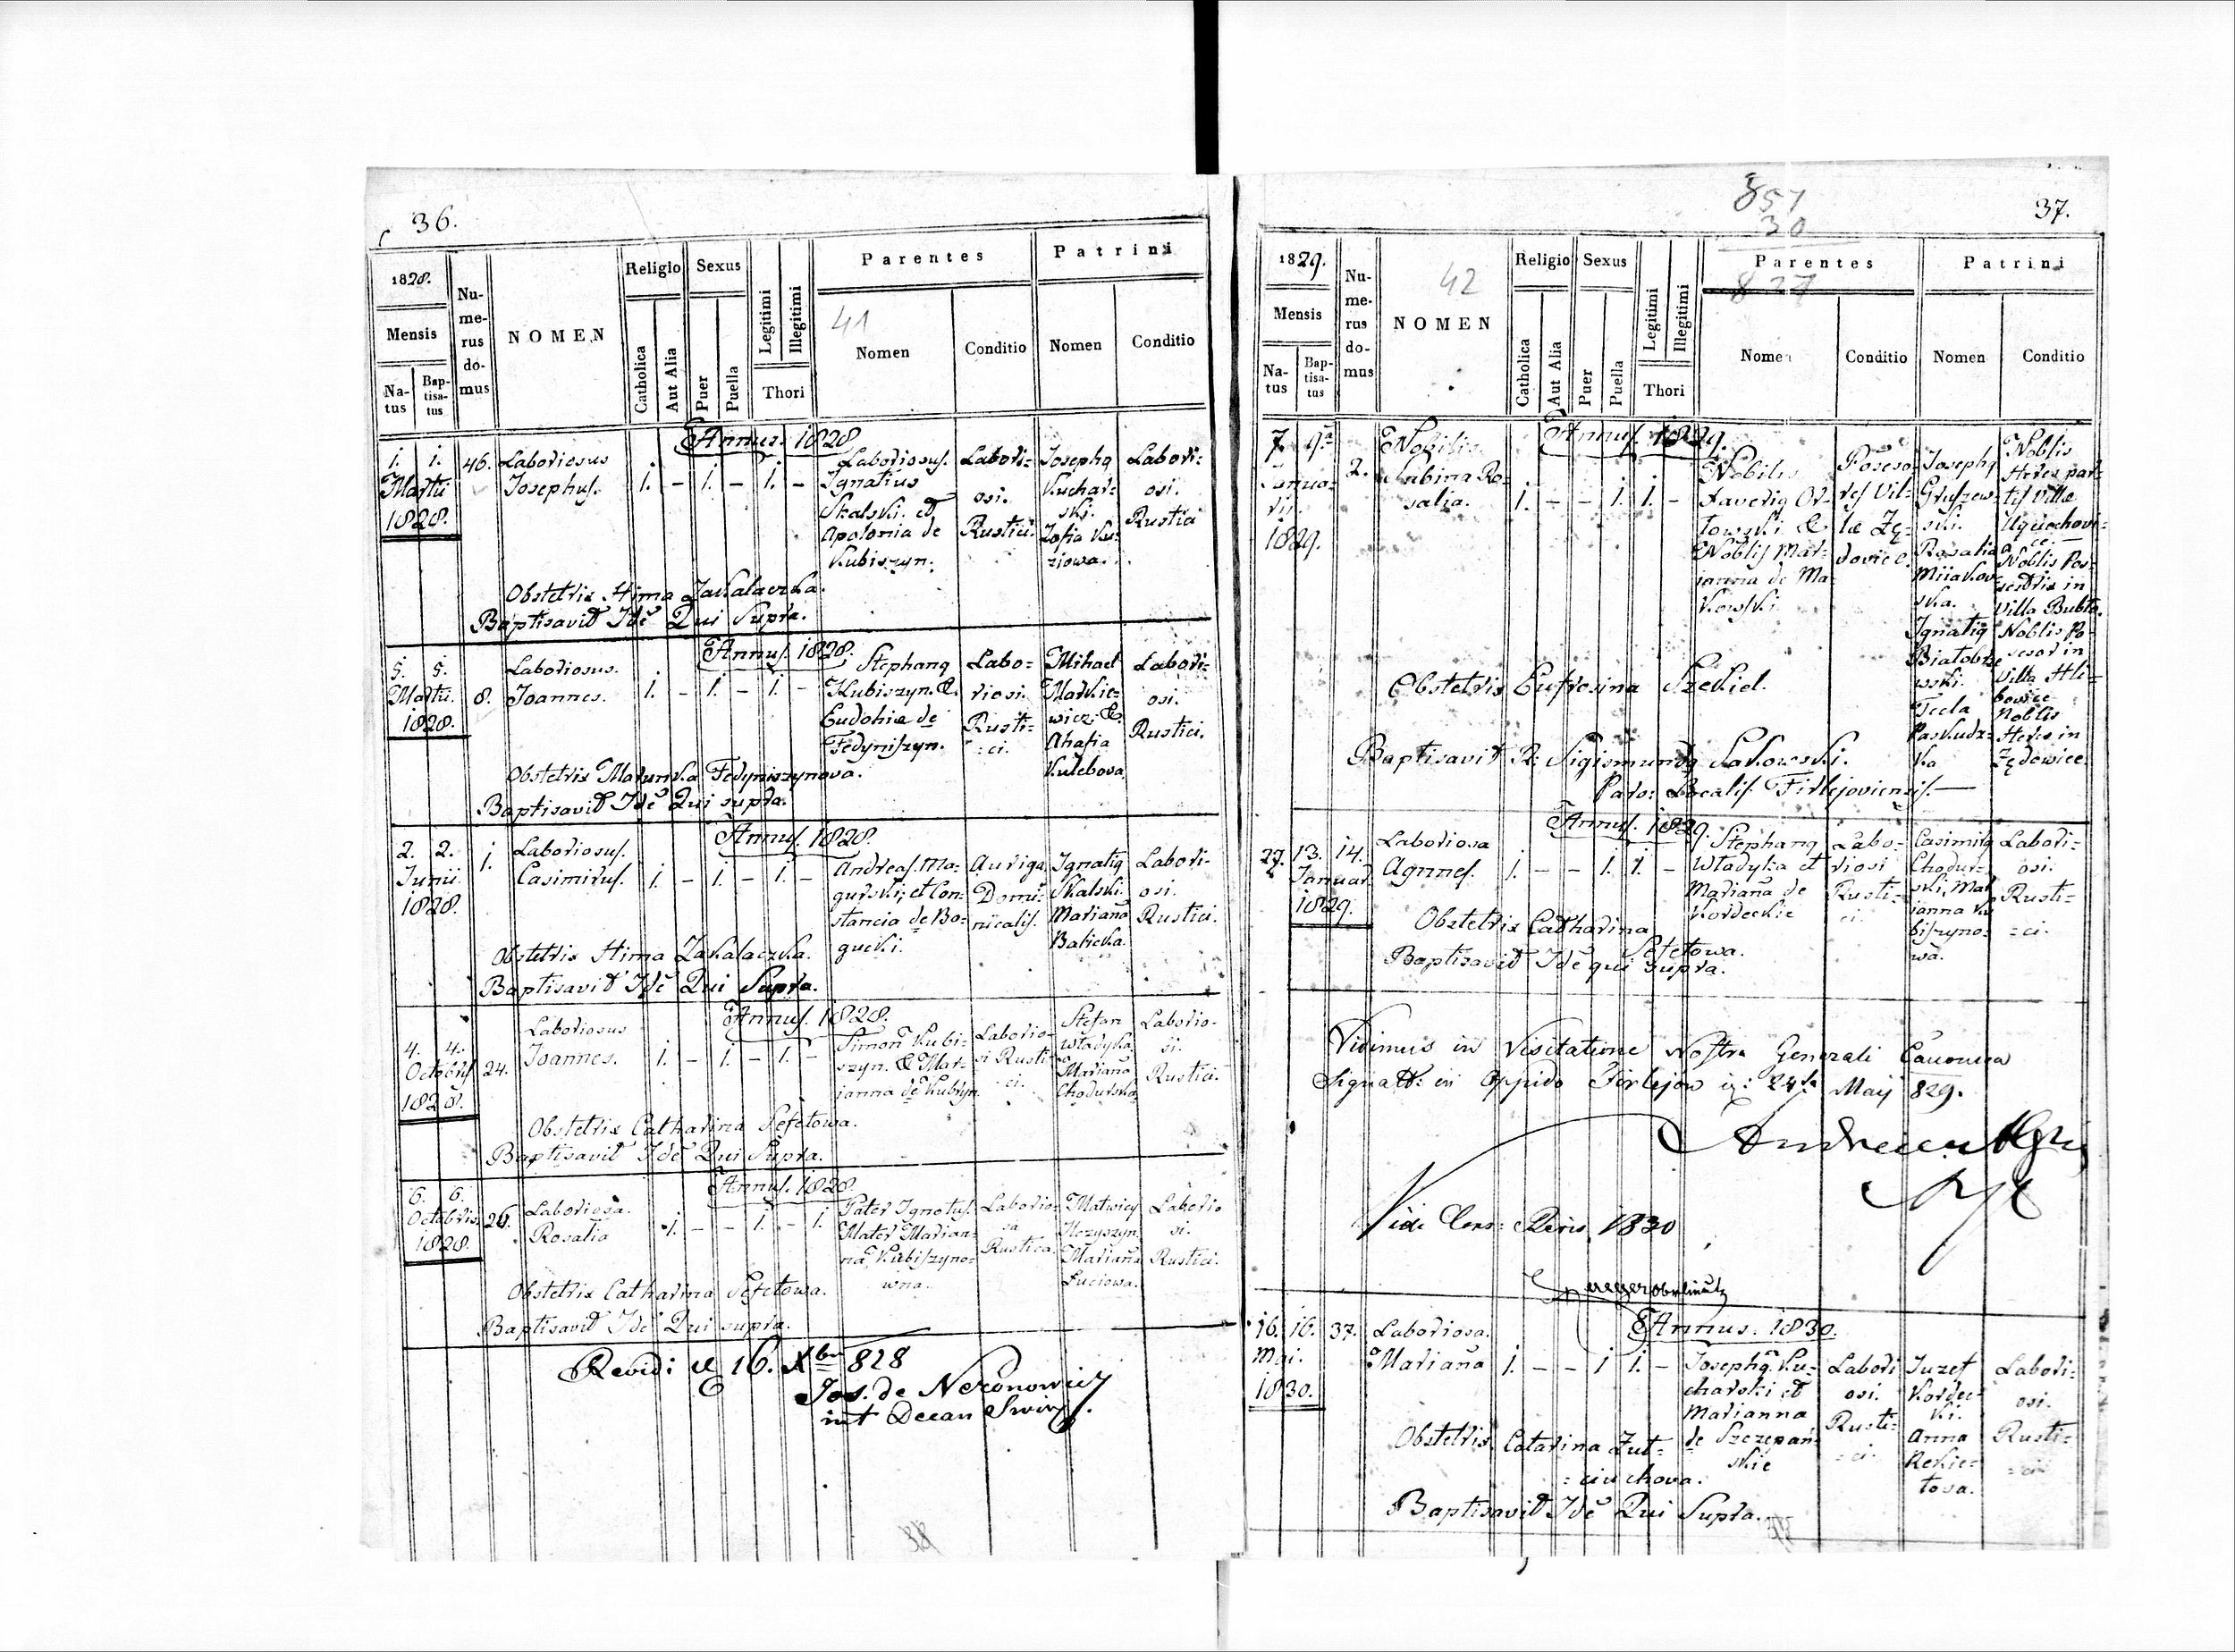 36.
1828.
Mensis
Na-
tus
Bap-
tisa-
tus
Nu-
me-
rus
do-
mus
NOMEN
Religio
Catholica
Aut Alia
Sexus
Puer
Puella
Legitimi
Illegitimi
Thori
Parentes
41
Nomen
Conditio
Patrini
Nomen
Conditio
Annus. 1828
1. 1.
Martii
1828.
46.
Laboriosus
Josephus.
1. - 1. - 1. -
Laboriosus.
Ignatius
Skalski. et
Apolonia de
Kubiszyn.
Labori-
osi.
Rustici.
Josephq
Kuchar-
ski.
Zofia Ku-
ziowa.
Labori-
osi.
Rustici
Obstetrix Hima Zakalaczka.
Baptisavit Idē Qui Supra.
Annus. 1828.
5. 5.
Martii.
1828.
8.
Laboriosus.
Joannes.
1. - 1. - 1. -
Stephanq
Kubiszyn. &
Eudohia de
Fedyniszyn.
Labo-
riosi.
Rusti-
-ci.
Mihael
Markie-
wicz. &
Ahafia
Kulebova
Labori-
osi.
Rustici.
Obstetrix Marunka Fedyniszynova.
Baptisavit Idē Qui supra.
Annus. 1828.
2. 2.
Junii
1828.
1.
Laboriosus.
Casimirus.
1. - 1. - 1. -
Andreas. Mo-
gurski, et Con-
stancia de Bo-
gucki.
Auriga
Domi-
nicalis.
Ignatiq
Skalski.
Mariana
Balicka.
Labori-
osi.
Rustici.
Obstetrix Hima Zakalaczka.
Baptisavit Idē Qui Supra.
Annus. 1828.
4. 4.
Octobris
1828.
24.
Laboriosus
Joannes.
1. - 1. - 1. -
Simon Kubi-
szyn. & Mar-
janna de Kubszyn.
Laborio-
si Rusti-
ci.
Stefan
Wladyka
Mariana
Chodurska
Laborio-
si.
Rustici.
Obstetrix Catharina Sefetowa.
Baptisavit Idē Qui Supra.
Annus. 1828.
6. 6.
Octobris
1828.
26.
Laboriosa.
Rosalia
1. - - 1. - 1.
Pater Ignotus.
Mater Marian-
na Kubiszyno-
wna.
Laborio-
sa
Rustica.
Matwiey
Hczyszyn.
Mariana
Luciowa.
Laborio
si.
Rustici.
Obstetrix Catharina Sefetowa.
Baptisavit Idē Qui supra.
Revidi 16. Xbris 828
Jos. de Neronowicz
Decan
37.
857
30
827
1829.
Mensis
Na-
tus
Bap-
tisa-
tus
Nu-
me-
rus
do-
mus
42
NOMEN
Religio
Catholica
Aut Alia
Sexus
Puer
Puella
Legitimi
Illegitimi
Thori
Parentes
Nomen
Conditio
Patrini
Nomen
Conditio
Annus. 1829.
7. 9a
Janua-
rii.
1829.
2.
Nobilis
Sabina Ro-
salia.
1. - - 1. 1. -
Nobilis
Xaveriq Or-
lowski &
Noblis Mar-
janna de Ma-
kowski
Poseso-
res Vil-
lae Zę-
dovice.
Josephq
Gruszew-
ski.
Rosalia
Miiakov-
ska.
Ignatiq
Bialobrze
wski.
Tecla
Paskudz-
ka
Noblis
Heres par-
tis Villae
Uguichovi-
ce.
Noblis Pos-
sestrix in
Villa Bubto.
Noblis Po-
sesor in
Villa Hli-
bowice
Noblis
Heres in
Zędowice.
Obstetrix Eufrosina Szekiel.
Baptisavit R: Sigismundq Sakowski.
Paro: Localis. Firlejoviensis.—
Annus. 1829.
27. 13.
Januar.
1829.
14.
Laboriosa
Agnnes.
1. - - 1. 1. -
Stephanq
Wladyka et
Mariana de
Kordeckie
Labo-
riosi
Rusti-
ci.
Casimirq
Chodur-
ski, Mar
janna Ku
biszyno-
wa.
Labori-
osi.
Rusti-
-ci.
Obstetrix Catharina
Sefetowa.
Baptisavit Idē qui supra.
Vidimus in Visitatione Nostra Generali Canonica
Signatt: in Oppido Firlejow 24ta Maij 829.
Vidi 1830
Annus. 1830.
16. 16.
Mai.
1830.
37.
Laboriosa.
Mariana
1. - - 1 1. -
Josephq. Ku-
charski et
Marianna
de Szczepan-
skie
Labori
osi.
Rusti-
-ci.
Juzef
Kordec-
ki.
Anna
Rekie-
tova.
Labori-
osi.
Rusti-
-ci
Obstetrix Catarina Zut-
-ciuchova.
Baptisavit Idē Qui Supra.